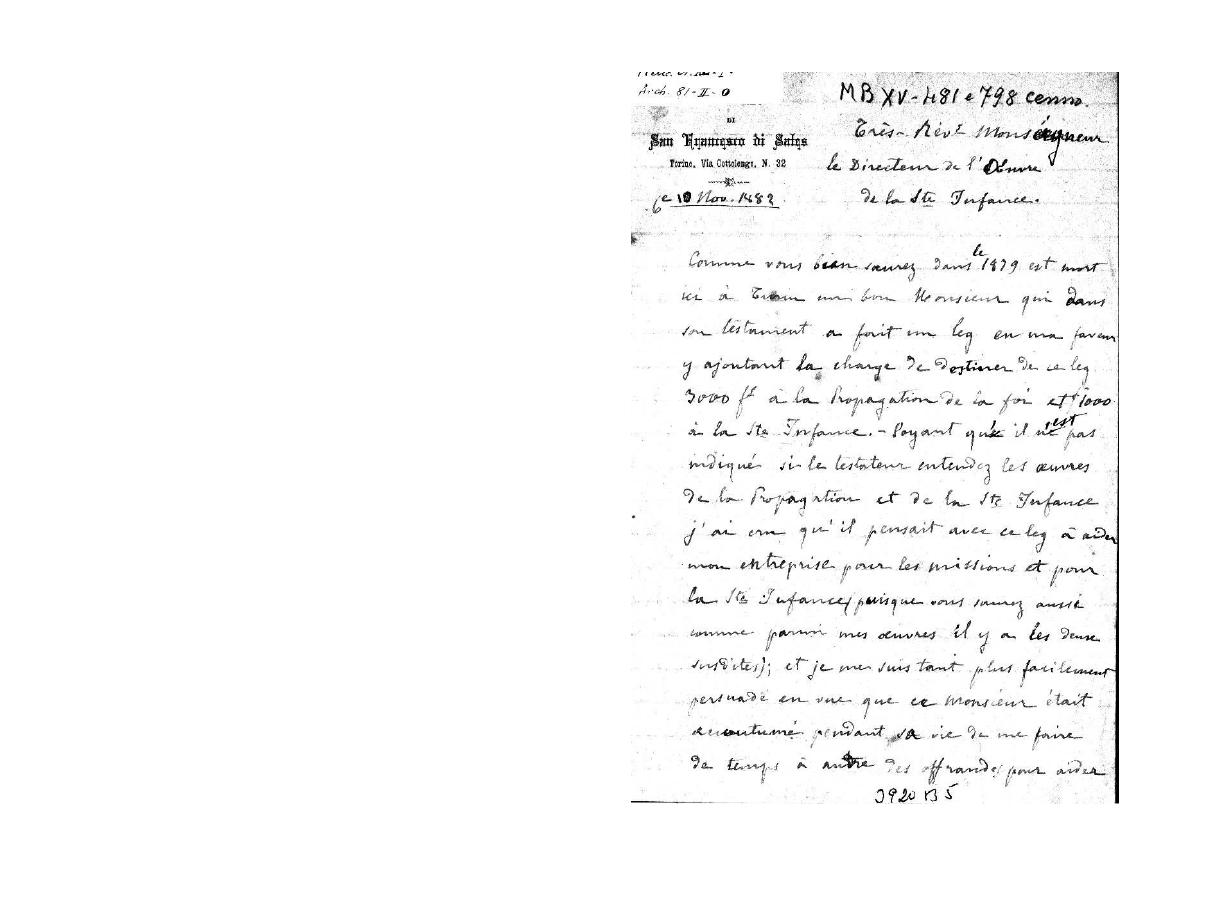 Arch. 81-II-0
MB XV-481 e 798 cenno.
DI
San Francesco di Sales
Torino, Via Cottolengo, N. 32
ce 10 Nov. 1882
Très-Rév.r Monséigneur
le Directeur de l'Œuvre
de la Ste Infance.
Comme vous bien saurez dans le 1879 est mort
ici à Turin un bon Monsieur qui dans
son testament a fait un leg en ma faveur
y ajoutant la charge de destiner de ce leg
3000 f.r à la Propagation de la foi et 1000
à la Ste Infance. - Soyant qu' il n'est pas
indiqué si le testateur entendez les œuvres
de la Propagation et de la Ste Infance
j'ai cru qu'il pensait avec ce leg à aider
mon entreprise pour les missions et pour
la Ste Infance (puisque vous saurez aussi
comme parmi mes œuvres il y a les deux
susdites); et je me suis tant plus facilement
persuadé en vue que ce Monsieur était
accoutumé pendant sa vie de me faire
de temps à autre des offrandes pour aider
3920 B 5